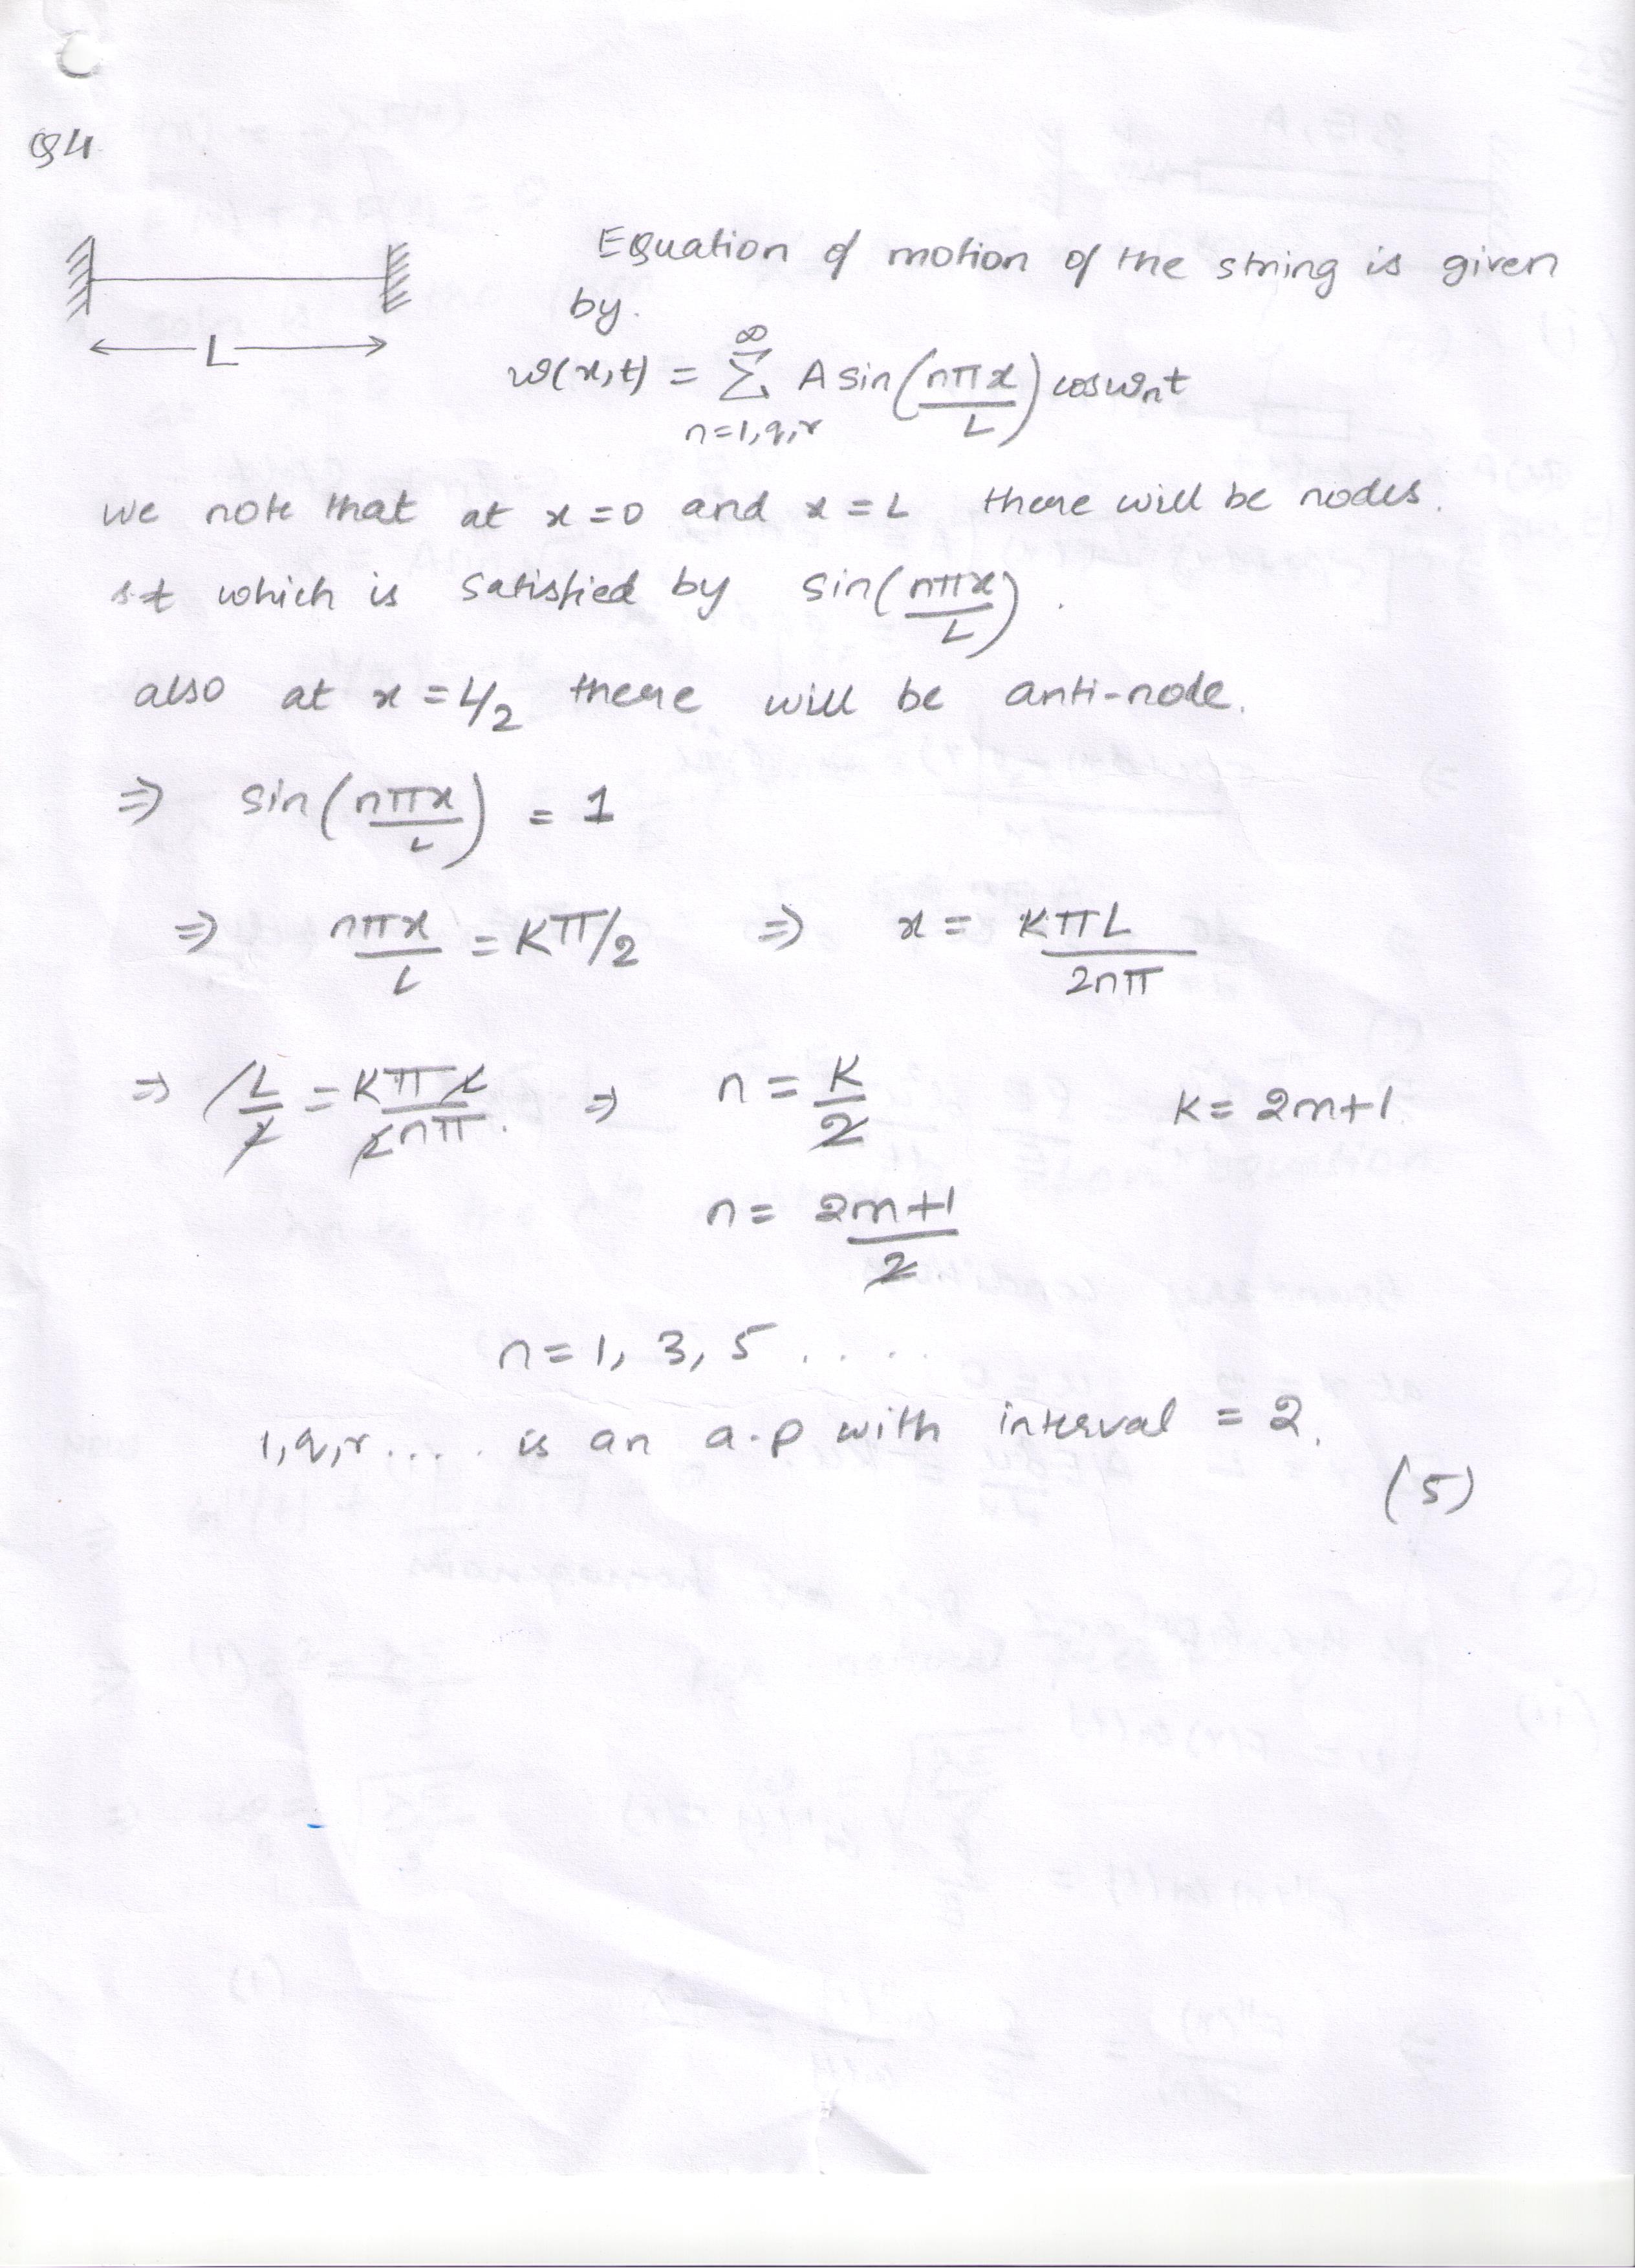 Q4
Equation of motion of the string is given
by.
L
w(x,t) = ∞ Σ n=1,q,r A sin(nπx/L) cos ω_n t
we note that at x=0 and x=L there will be nodes.
s.t which is satisfied by sin(nπx/L).
also at x=L/2 there will be anti-node.
⇒ sin(nπx/L) = 1
⇒ nπx/L = Kπ/2 ⇒ x = KπL/2nπ
⇒ L/2 = KπL/2nπ. ⇒ n = K/2 K = 2m+1
n = 2m+1/2
n = 1, 3, 5 .....
1,q,r.... is an a.p with interval = 2.
(5)